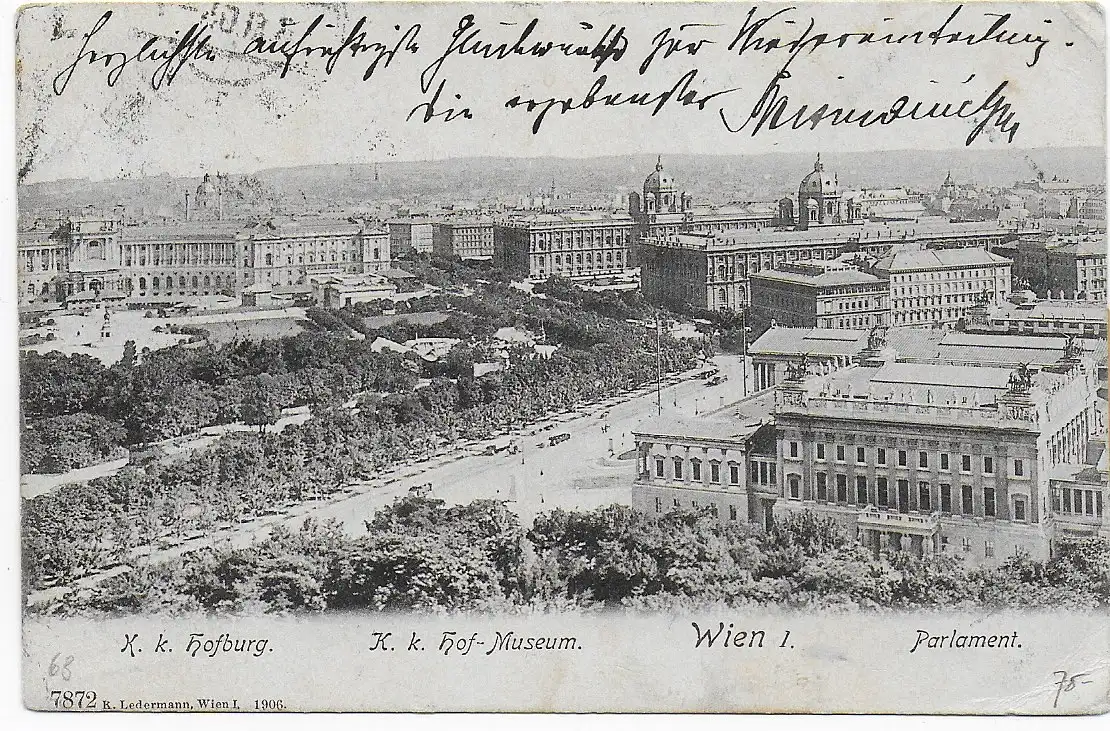 Herzlichste aufrichtigste Glückwünsche zur Wiedereinteilung.
Die ergebensten
K. k. Hofburg. K. k. Hof-Museum. Wien I. Parlament.
68
7872 K. Ledermann, Wien I, 1906.
75-